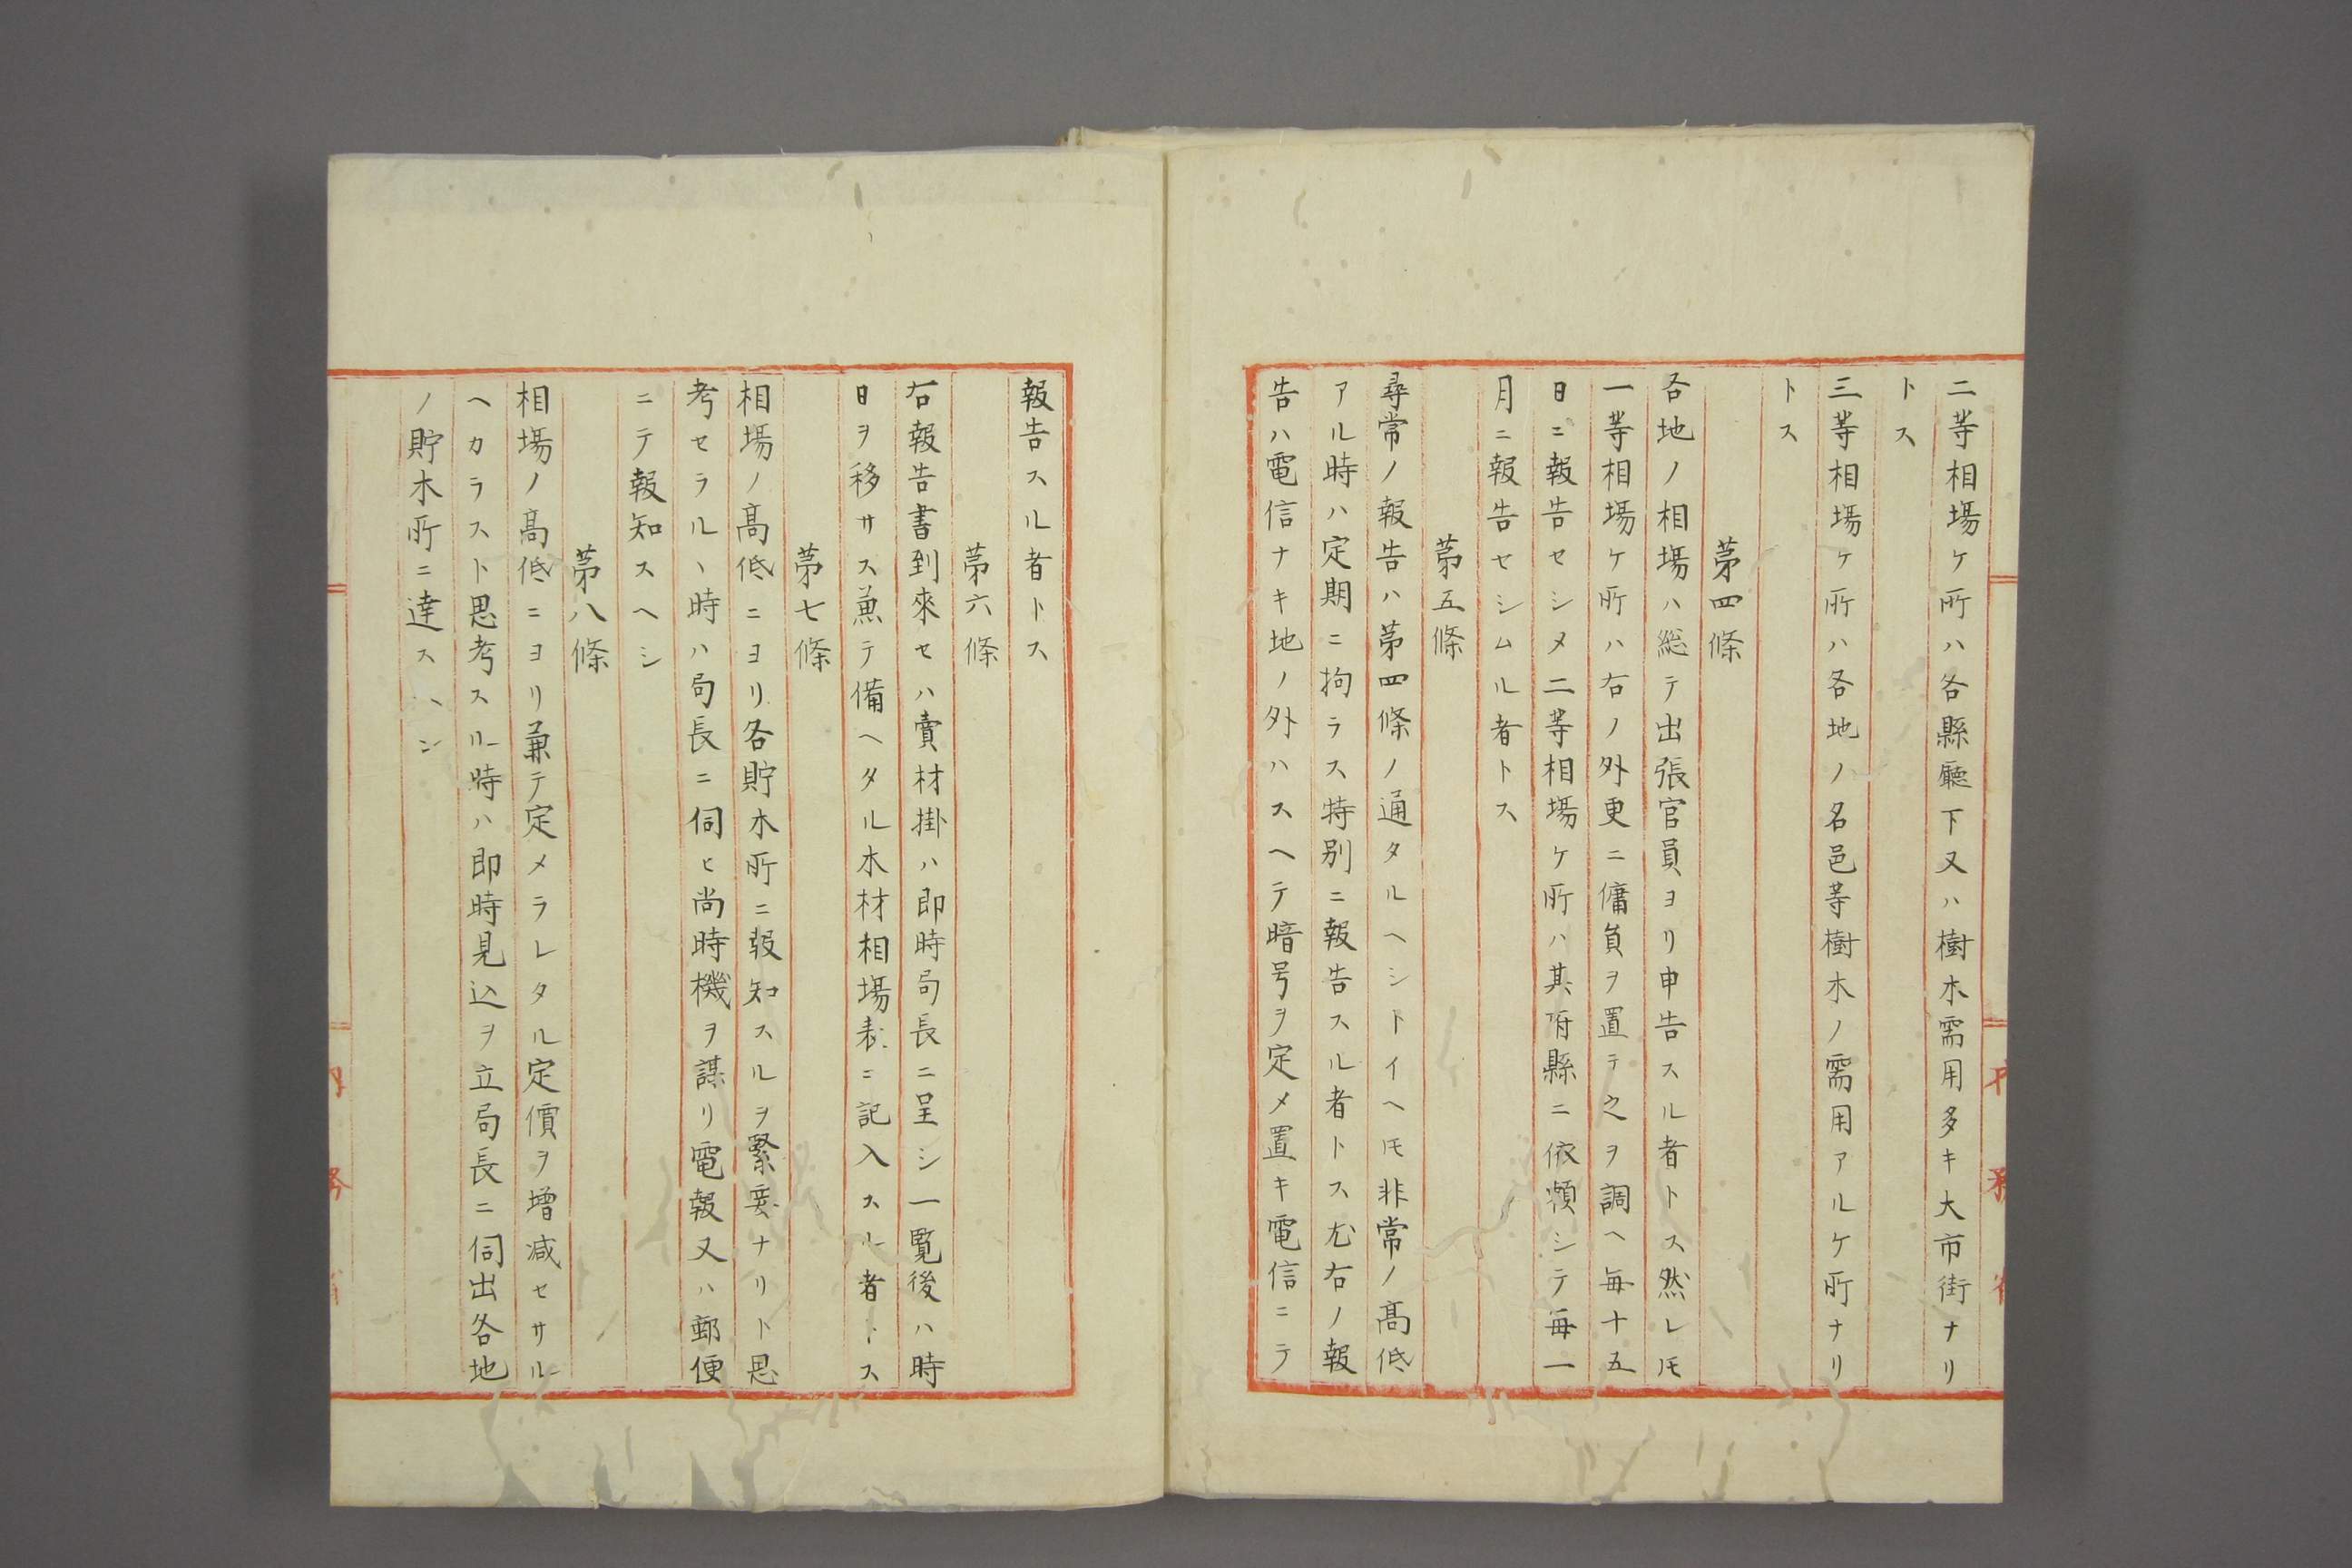 二等相場ケ所ハ各縣廳下又ハ樹木需用多キ大市街ナリ
トス
三等相場ケ所ハ各地ノ名邑等樹木ノ需用アルケ所ナリ
トス
第四條
各地ノ相場ハ総テ出張官員ヨリ申告スル者トス然レ𪜈
一等相場ケ所ハ右ノ外更ニ傭員ヲ置テ之ヲ調ヘ毎十五
日ニ報告セシメ二等相場ケ所ハ其府縣ニ依頼シテ毎一
月ニ報告セシムル者トス
第五條
尋常ノ報告ハ第四條ノ通タルヘシトイヘ𪜈非常ノ髙低
アル時ハ定期ニ拘ラス特別ニ報告スル者トス尤右ノ報
告ハ電信ナキ地ノ外ハスヘテ暗号ヲ定メ置キ電信ニテ
報告スル者トス
第六條
右報告書到來セハ賣材掛ハ即時局長ニ呈シ一覧後ハ時
日ヲ移サス兼テ備ヘタル木材相場表ニ記入スル者トス
第七條
相場ノ髙低ニヨリ各貯木所ニ報知スルヲ緊要ナリト思
考セラルヽ時ハ局長ニ伺ヒ尚時機ヲ謀リ電報又ハ郵便
ニテ報知スヘシ
第八條
相場ノ髙低ニヨリ兼テ定メラレタル定價ヲ増减セサル
ヘカラスト思考スル時ハ即時見込ヲ立局長ニ伺出各地
ノ貯木所ニ達スヘシ